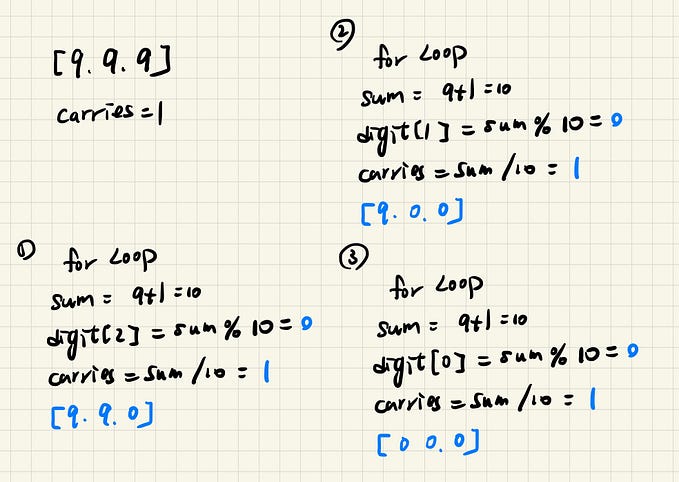 [9. 9. 9]
carries = 1
①
for Loop
sum = 9+1 = 10
digit[2] = sum % 10 = 0
carries = sum / 10 = 1
[9. 9. 0]
②
for Loop
sum = 9+1 = 10
digit[1] = sum % 10 = 0
carries = sum / 10 = 1
[9. 0. 0]
③
for Loop
sum = 9+1 = 10
digit[0] = sum % 10 = 0
carries = sum / 10 = 1
[0 0. 0]